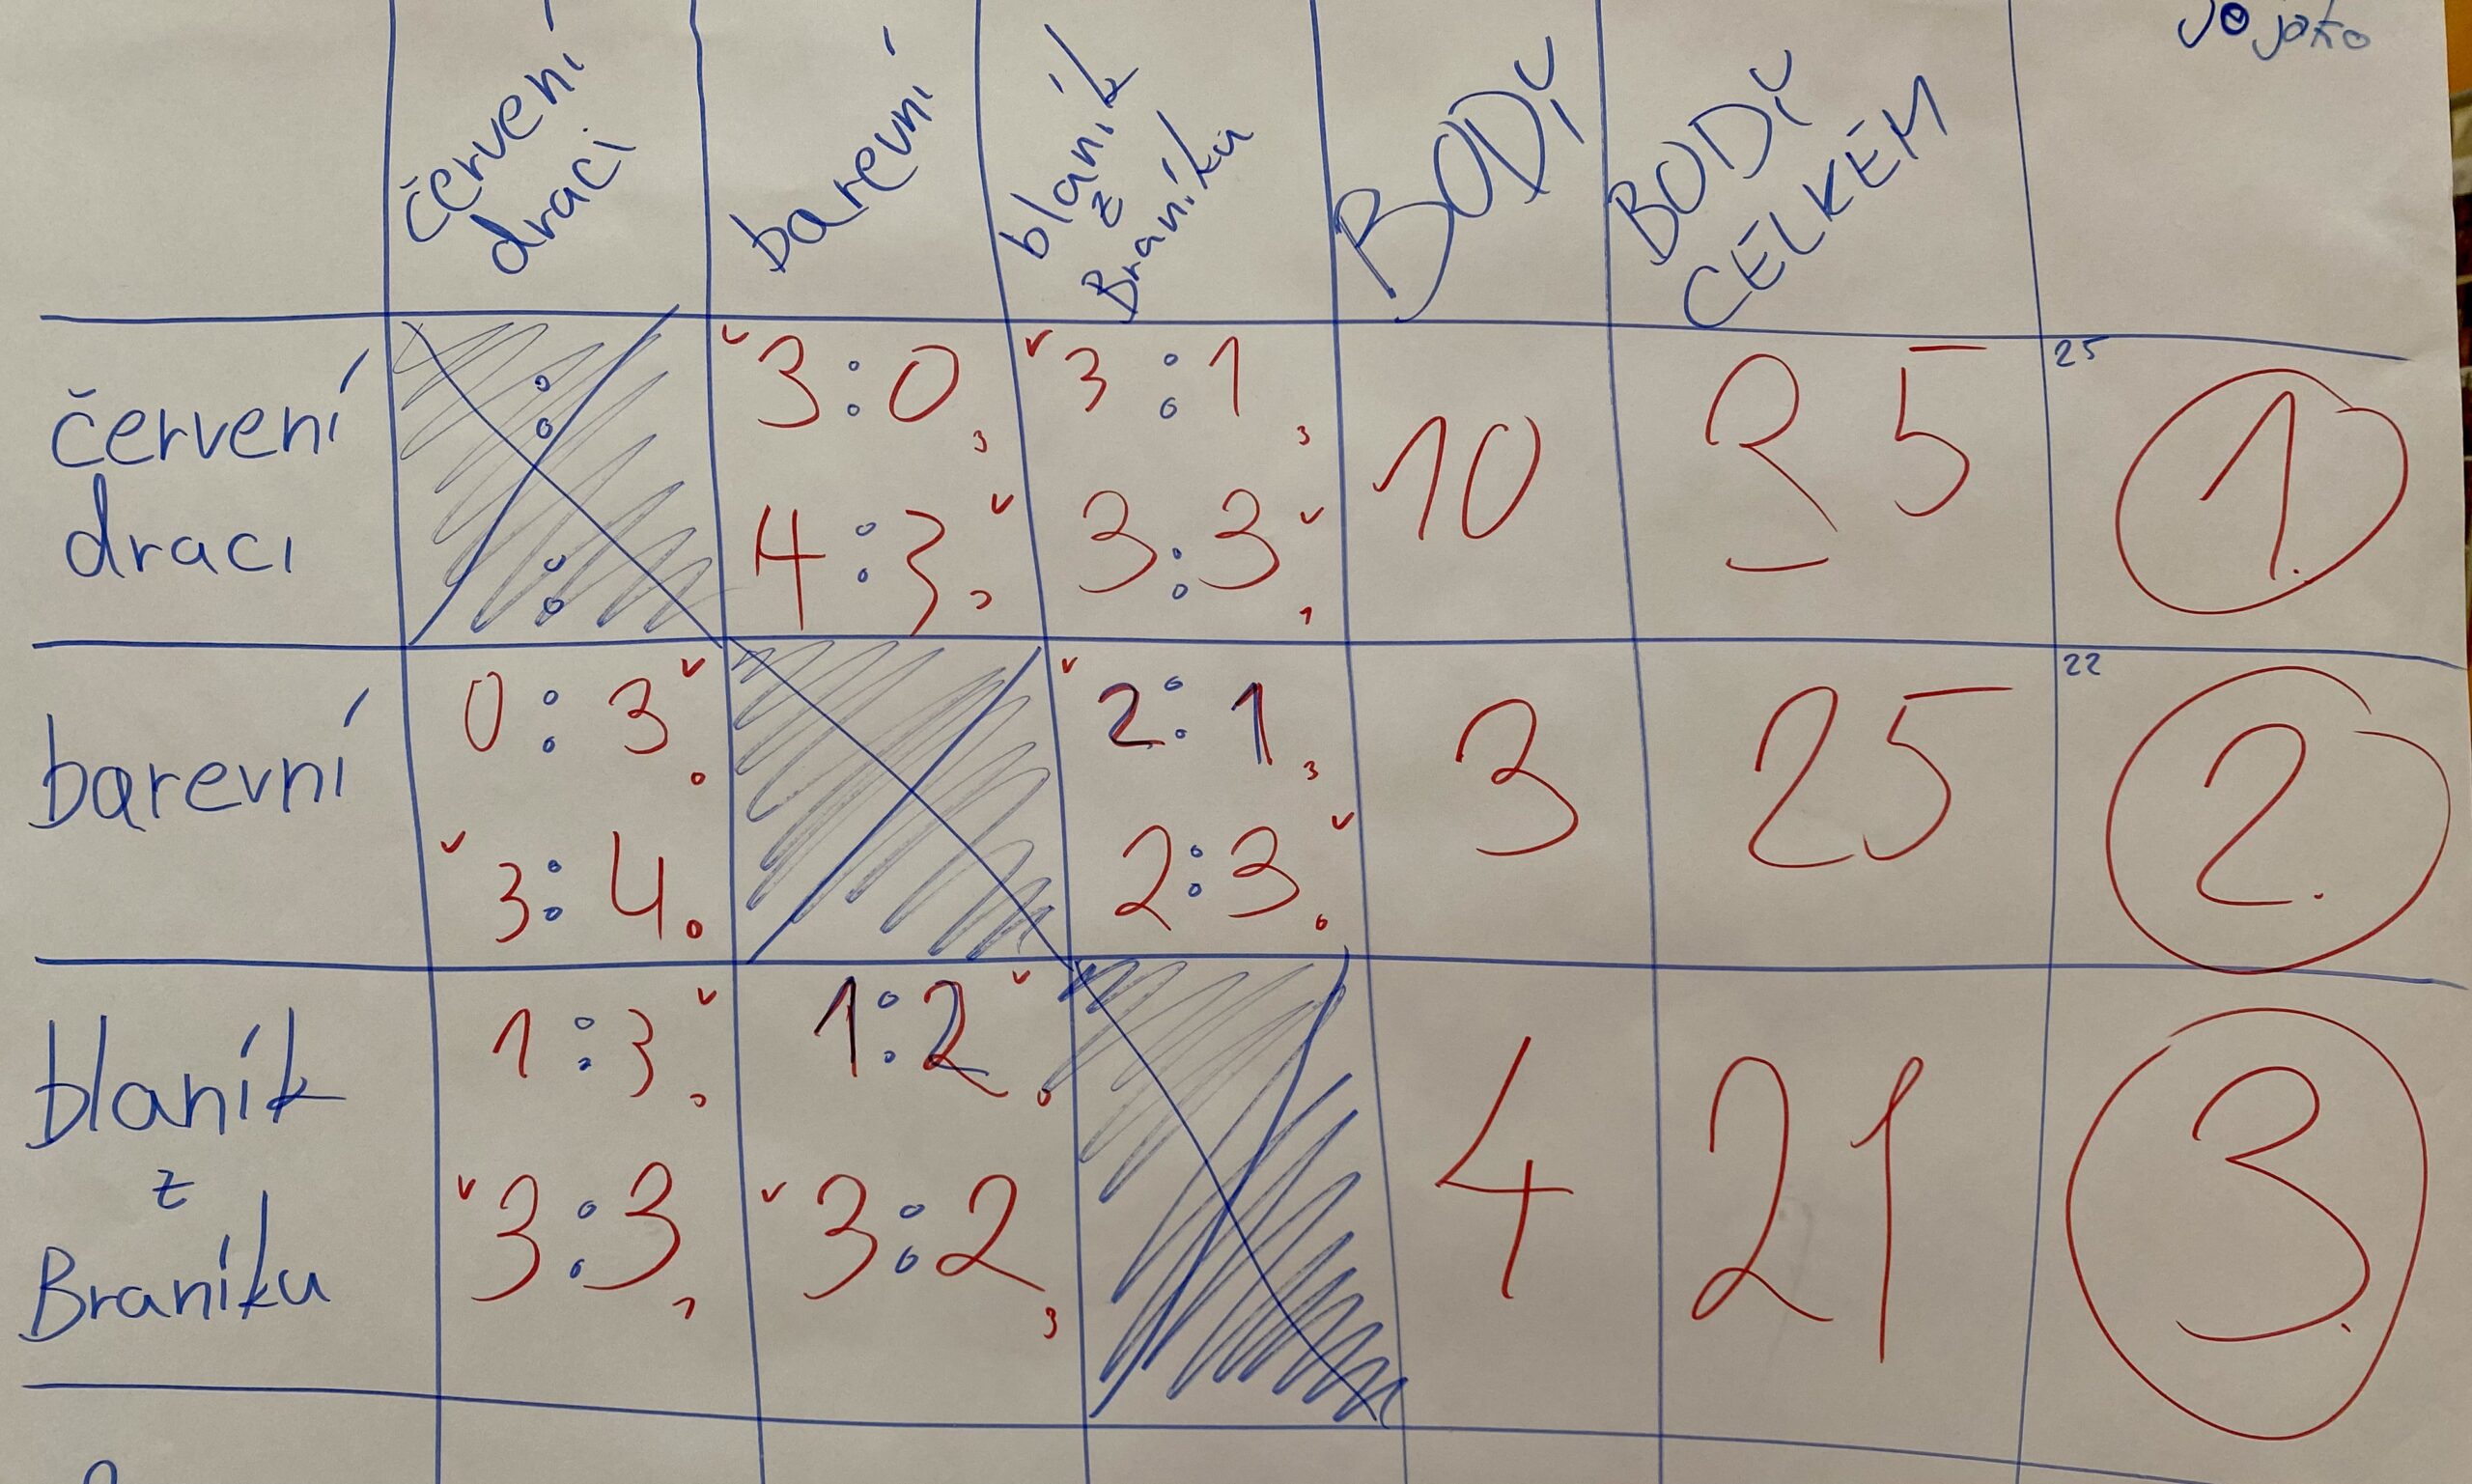 jojoko
červení draci
barevní
blaník z Braníku
BODŮ
BODŮ CELKEM
červení draci
3:0 3
4:3 3
3:1 3
3:3 1
10
35
25
1.
barevní
0:3 0
3:4 0
2:1 3
2:3 0
3
25
22
2.
blaník z Braníku
1:3 0
3:3 1
1:2 0
3:2 3
4
21
3.